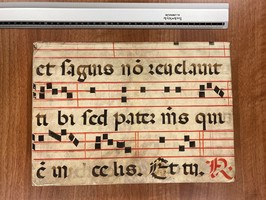 et saguis nō reuelauit
ti bi sed pater m̄s qui
ē in ce lis. Et tu. R